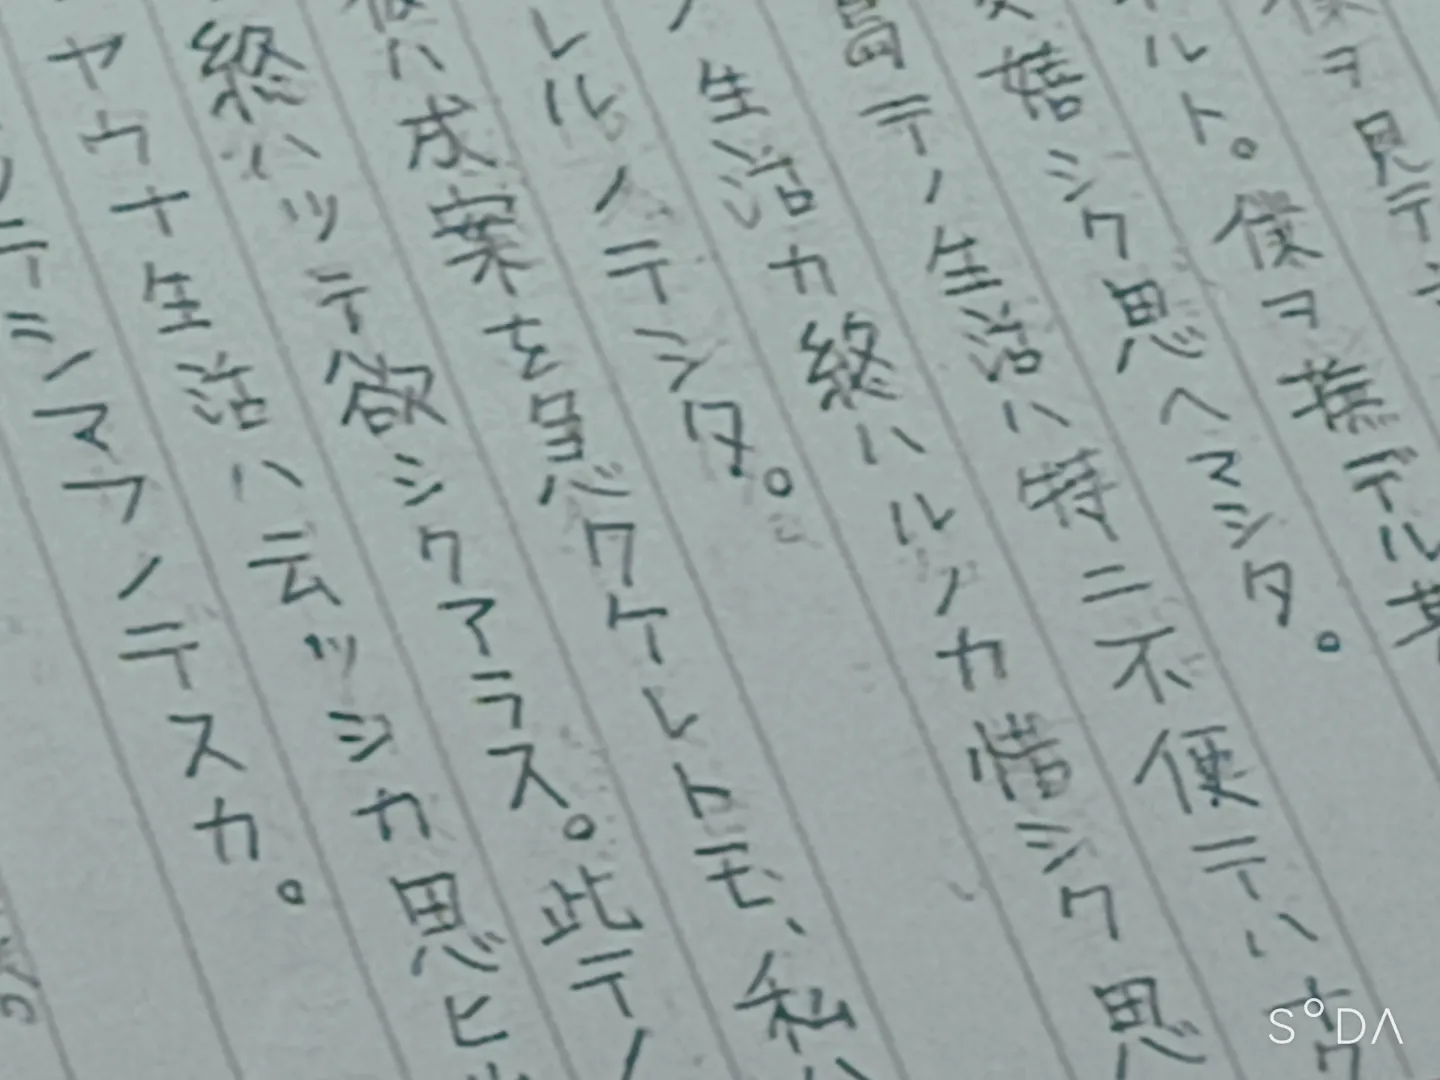 僕ヲ見テシ
ルト。僕ヲ撫デル
嬉シク思ヘマシタ。
テノ生活ハ特ニ不便テハナク
ノ生活カ終ハルノカ惜シク思
レルノテシタ。
ハ成案を急クケレトモ、私ハ
終ハッテ欲シクアラス。此テノ
ヤウナ生活ハ云ッシカ思ヒ
テシマフノテスカ。
SODA